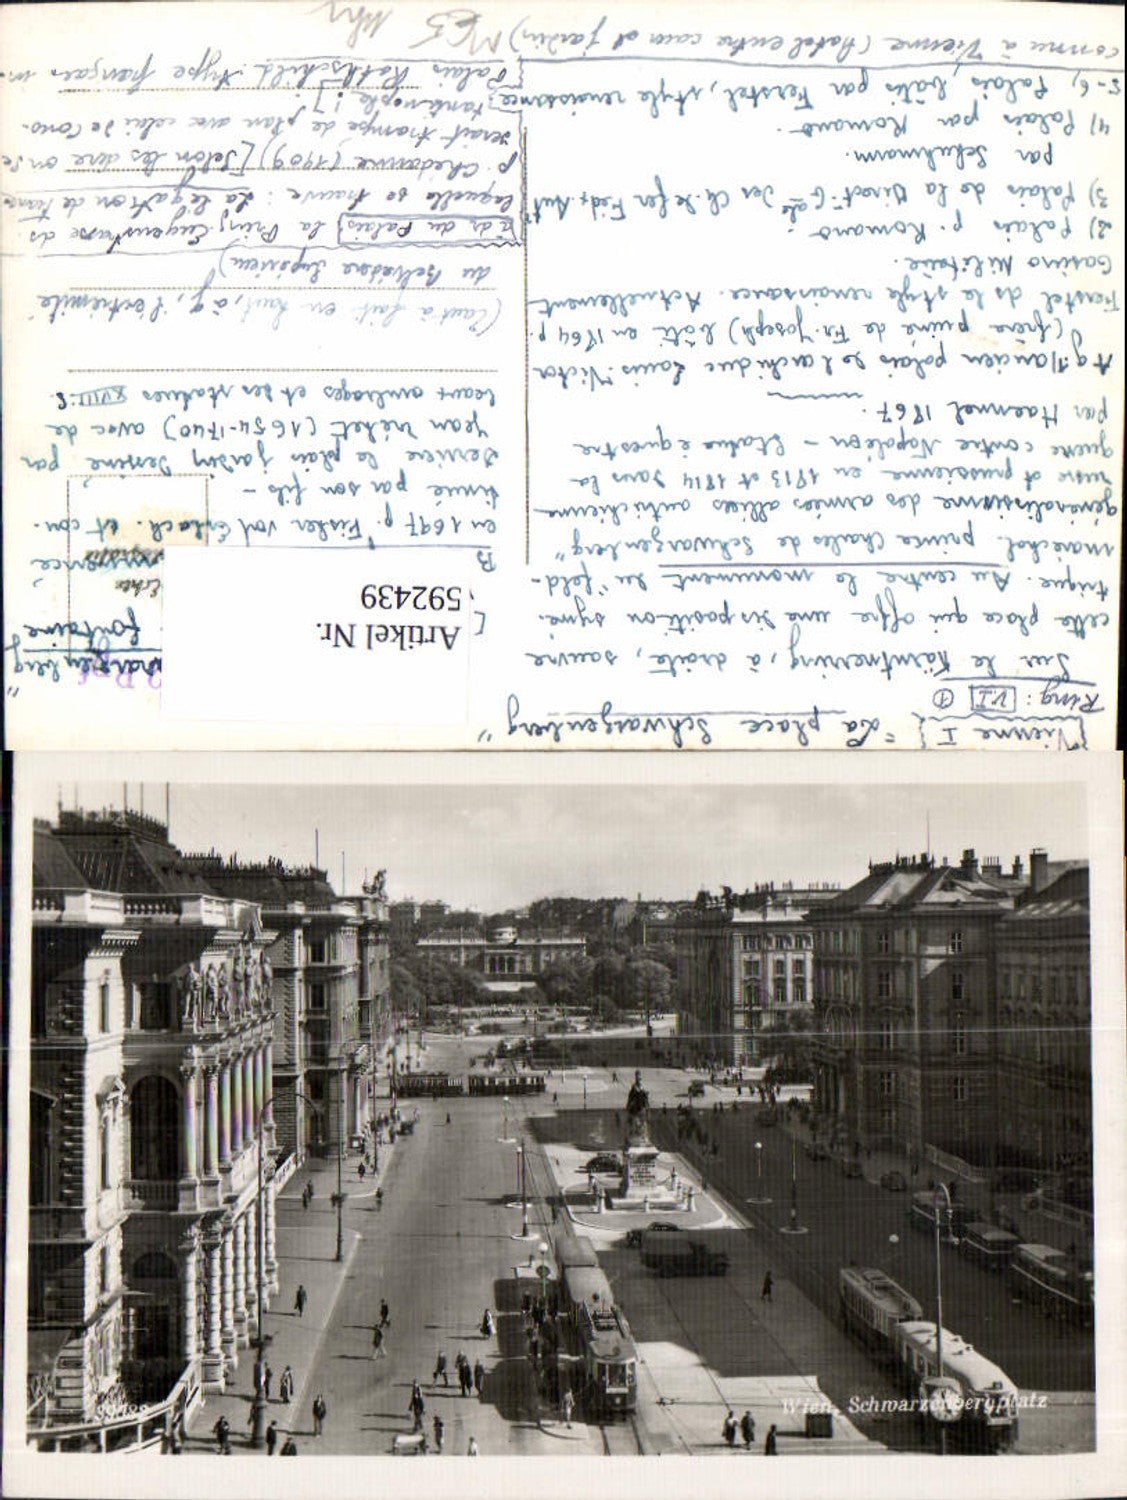 Vienne I "La place Schwarzenberg"
Ring: VI ①
Sur le Kärntnerring, à droite, s'ouvre
cette place qui offre une disposition symé-
trique. Au centre le monument du "feld-
maréchal prince Charles de Schwarzenberg"
généralissime des armées alliées autrichienne
russe et prussienne en 1813 et 1814 dans la
guerre contre Napoléon - Statue équestre
par Haennel 1867.
A g 1) ancien palais de l'archiduc Louis-Victor
(frère puiné de Fr. Joseph) bâti en 1864 p.
Ferstel ds le style renaissance. Actuellement
Casino Militaire.
2) Palais p. Romano
3) Palais de la Direct. Gale des Ch. de fer Fed.
par Schumann.
4) Palais par Romano.
5-6) Palais bâtis par Ferstel, style renaissance
connu à Vienne (hotel entre cour et jardin)
Artikel Nr.
592439
fontaine
en 1697 p. Fischer von Erlach et con-
tinué par son fils -
Derrière le plain jardin dessiné par
Jean Trehet (1654-1740) avec de
beaux ombrages et des statues XVIII s.
(tout à fait en haut, à g, l'extremité
du Belvédère Supérieur)
à dr du Palais, la Prinz Eugenstrasse ds
laquelle se trouve : La légation de France
p. Chedanne (1909) [Selon les dire on se
serait trompé de plan avec celui de Cons-
tantinople !]
Palais Rothschild type français
89188
Wien, Schwarzenbergplatz